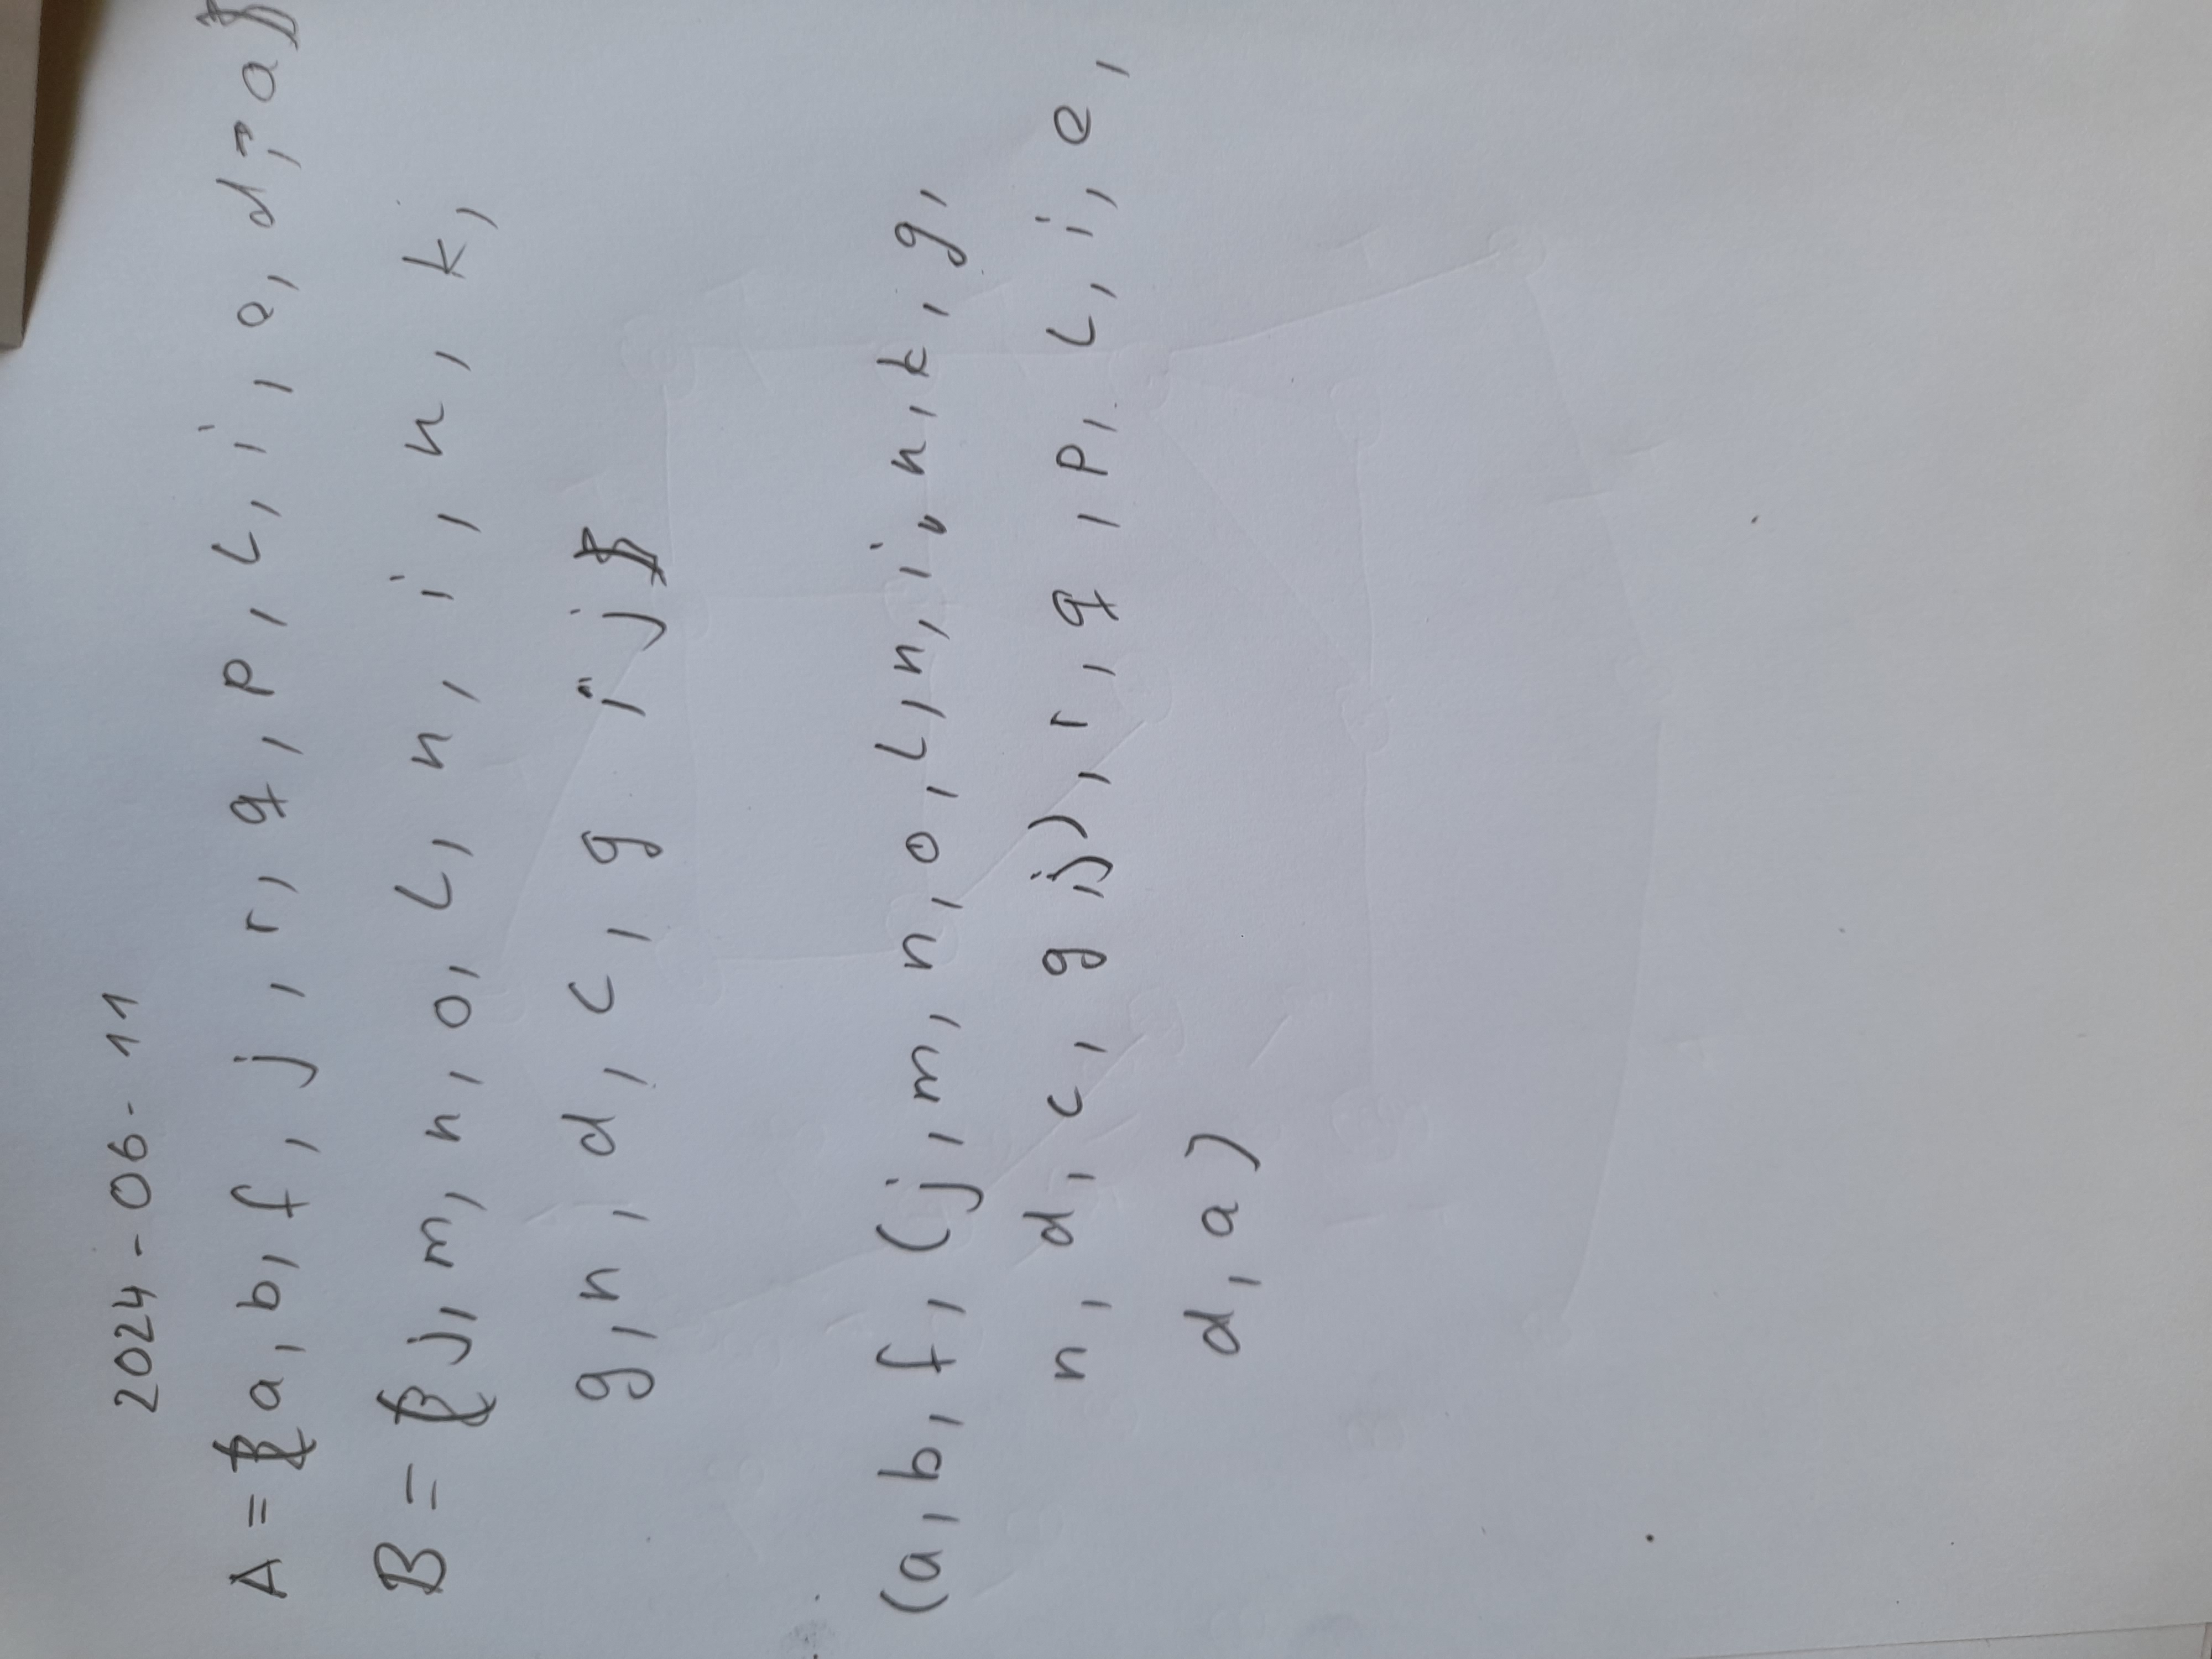 2024-06-11
A = { a, b, f, j, r, q, p, L, i, e, d, a }
B = { j, m, n, o, L, n, i, n, k,
g, n, d, c, g, j }
(a, b, f, (j, m, n, o, L, n, i, n, k, g,
n, d, c, g, j), r, q, p, L, i, e,
d, a)